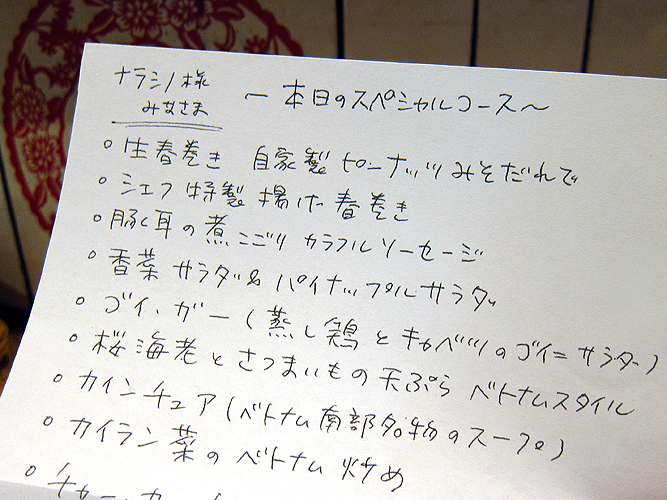 ナラシノ様
みなさま
～本日のスペシャルコース～
○生春巻き 自家製ピーナッツみそだれで
○シェフ特製 揚げ春巻き
○豚耳の煮こごり カラフルソーセージ
○香菜サラダ&パイナップルサラダ
○ゴイ・ガー(蒸し鶏とキャベツのゴイ=サラダ)
○桜海老とさつまいもの天ぷら ベトナムスタイル
○カインチュア(ベトナム南部名物のスープ)
○カイラン菜のベトナム炒め